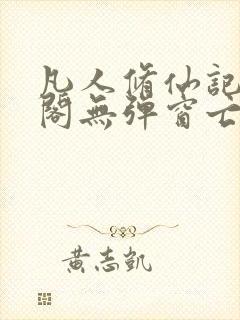 凡人脩仙記
閣無彈窗亡
黃志凱